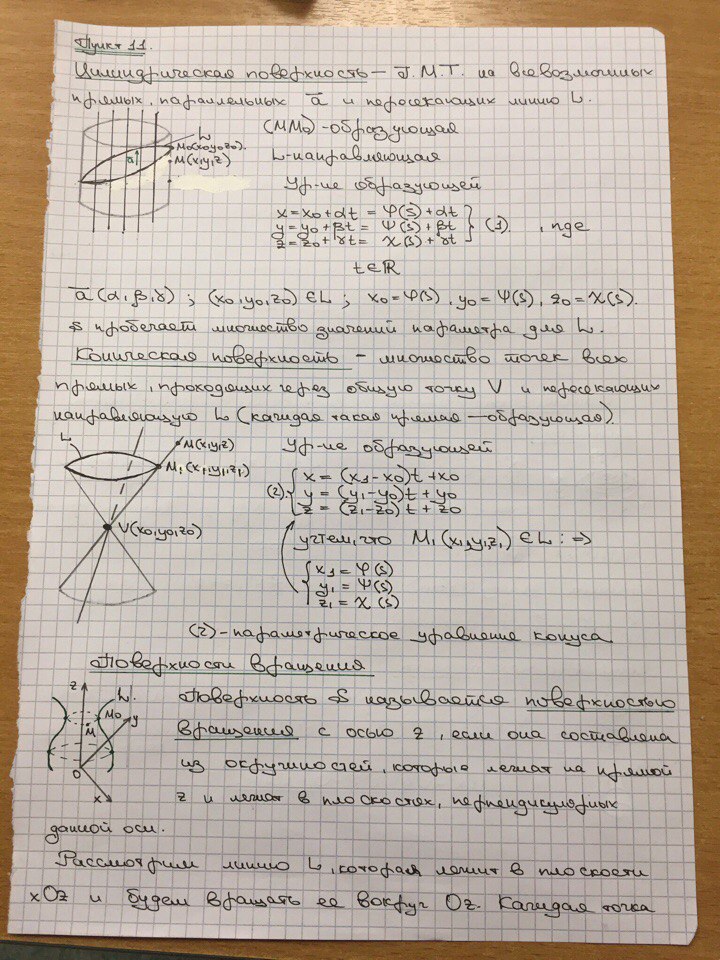 Пункт 11.
Цилиндрическая поверхность – Г.М.Т. на всевозможных
прямых, параллельных a̅ и пересекающих линию L.
L
M₀(x₀,y₀,z₀).
M(x,y,z)
a̅
(MM₀) – образующая
L – направляющая
Ур-ие образующей
x = x₀ + αt = φ(s) + αt
y = y₀ + βt = ψ(s) + βt } (1). , где
z = z₀ + γt = χ(s) + γt
t ∈ ℝ
a̅ (α, β, γ) ; (x₀,y₀,z₀) ∈ L ; x₀ = φ(s) , y₀ = ψ(s) , z₀ = χ(s).
s пробегает множество значений параметра для L.
Коническая поверхность – множество точек всех
прямых, проходящих через общую точку V и пересекающих
направляющую L (каждая такая прямая – образующая).
L
M(x,y,z)
M₁(x₁,y₁,z₁)
V(x₀,y₀,z₀)
Ур-ие образующей
x = (x₁-x₀)t + x₀
(2). { y = (y₁-y₀)t + y₀
z = (z₁-z₀)t + z₀
учтем, что M₁(x₁,y₁,z₁) ∈ L : =>
x₁ = φ(s)
{ y₁ = ψ(s)
z₁ = χ(s)
(2) – параметрическое уравнение конуса
Поверхности вращения
z
L.
M₀
y
M
O
x
Поверхность S называется поверхностью
вращения с осью z, если она составлена
из окружностей, которые лежат на прямой
z и лежат в плоскостях, перпендикулярных
данной оси.
Рассмотрим линию L, которая лежит в плоскости
xOz и будем вращать ее вокруг Oz. Каждая точка